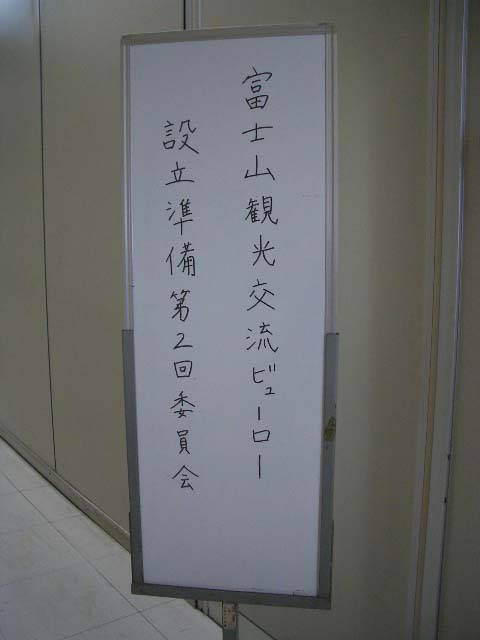 富士山観光交流ビューロー
設立準備第2回委員会